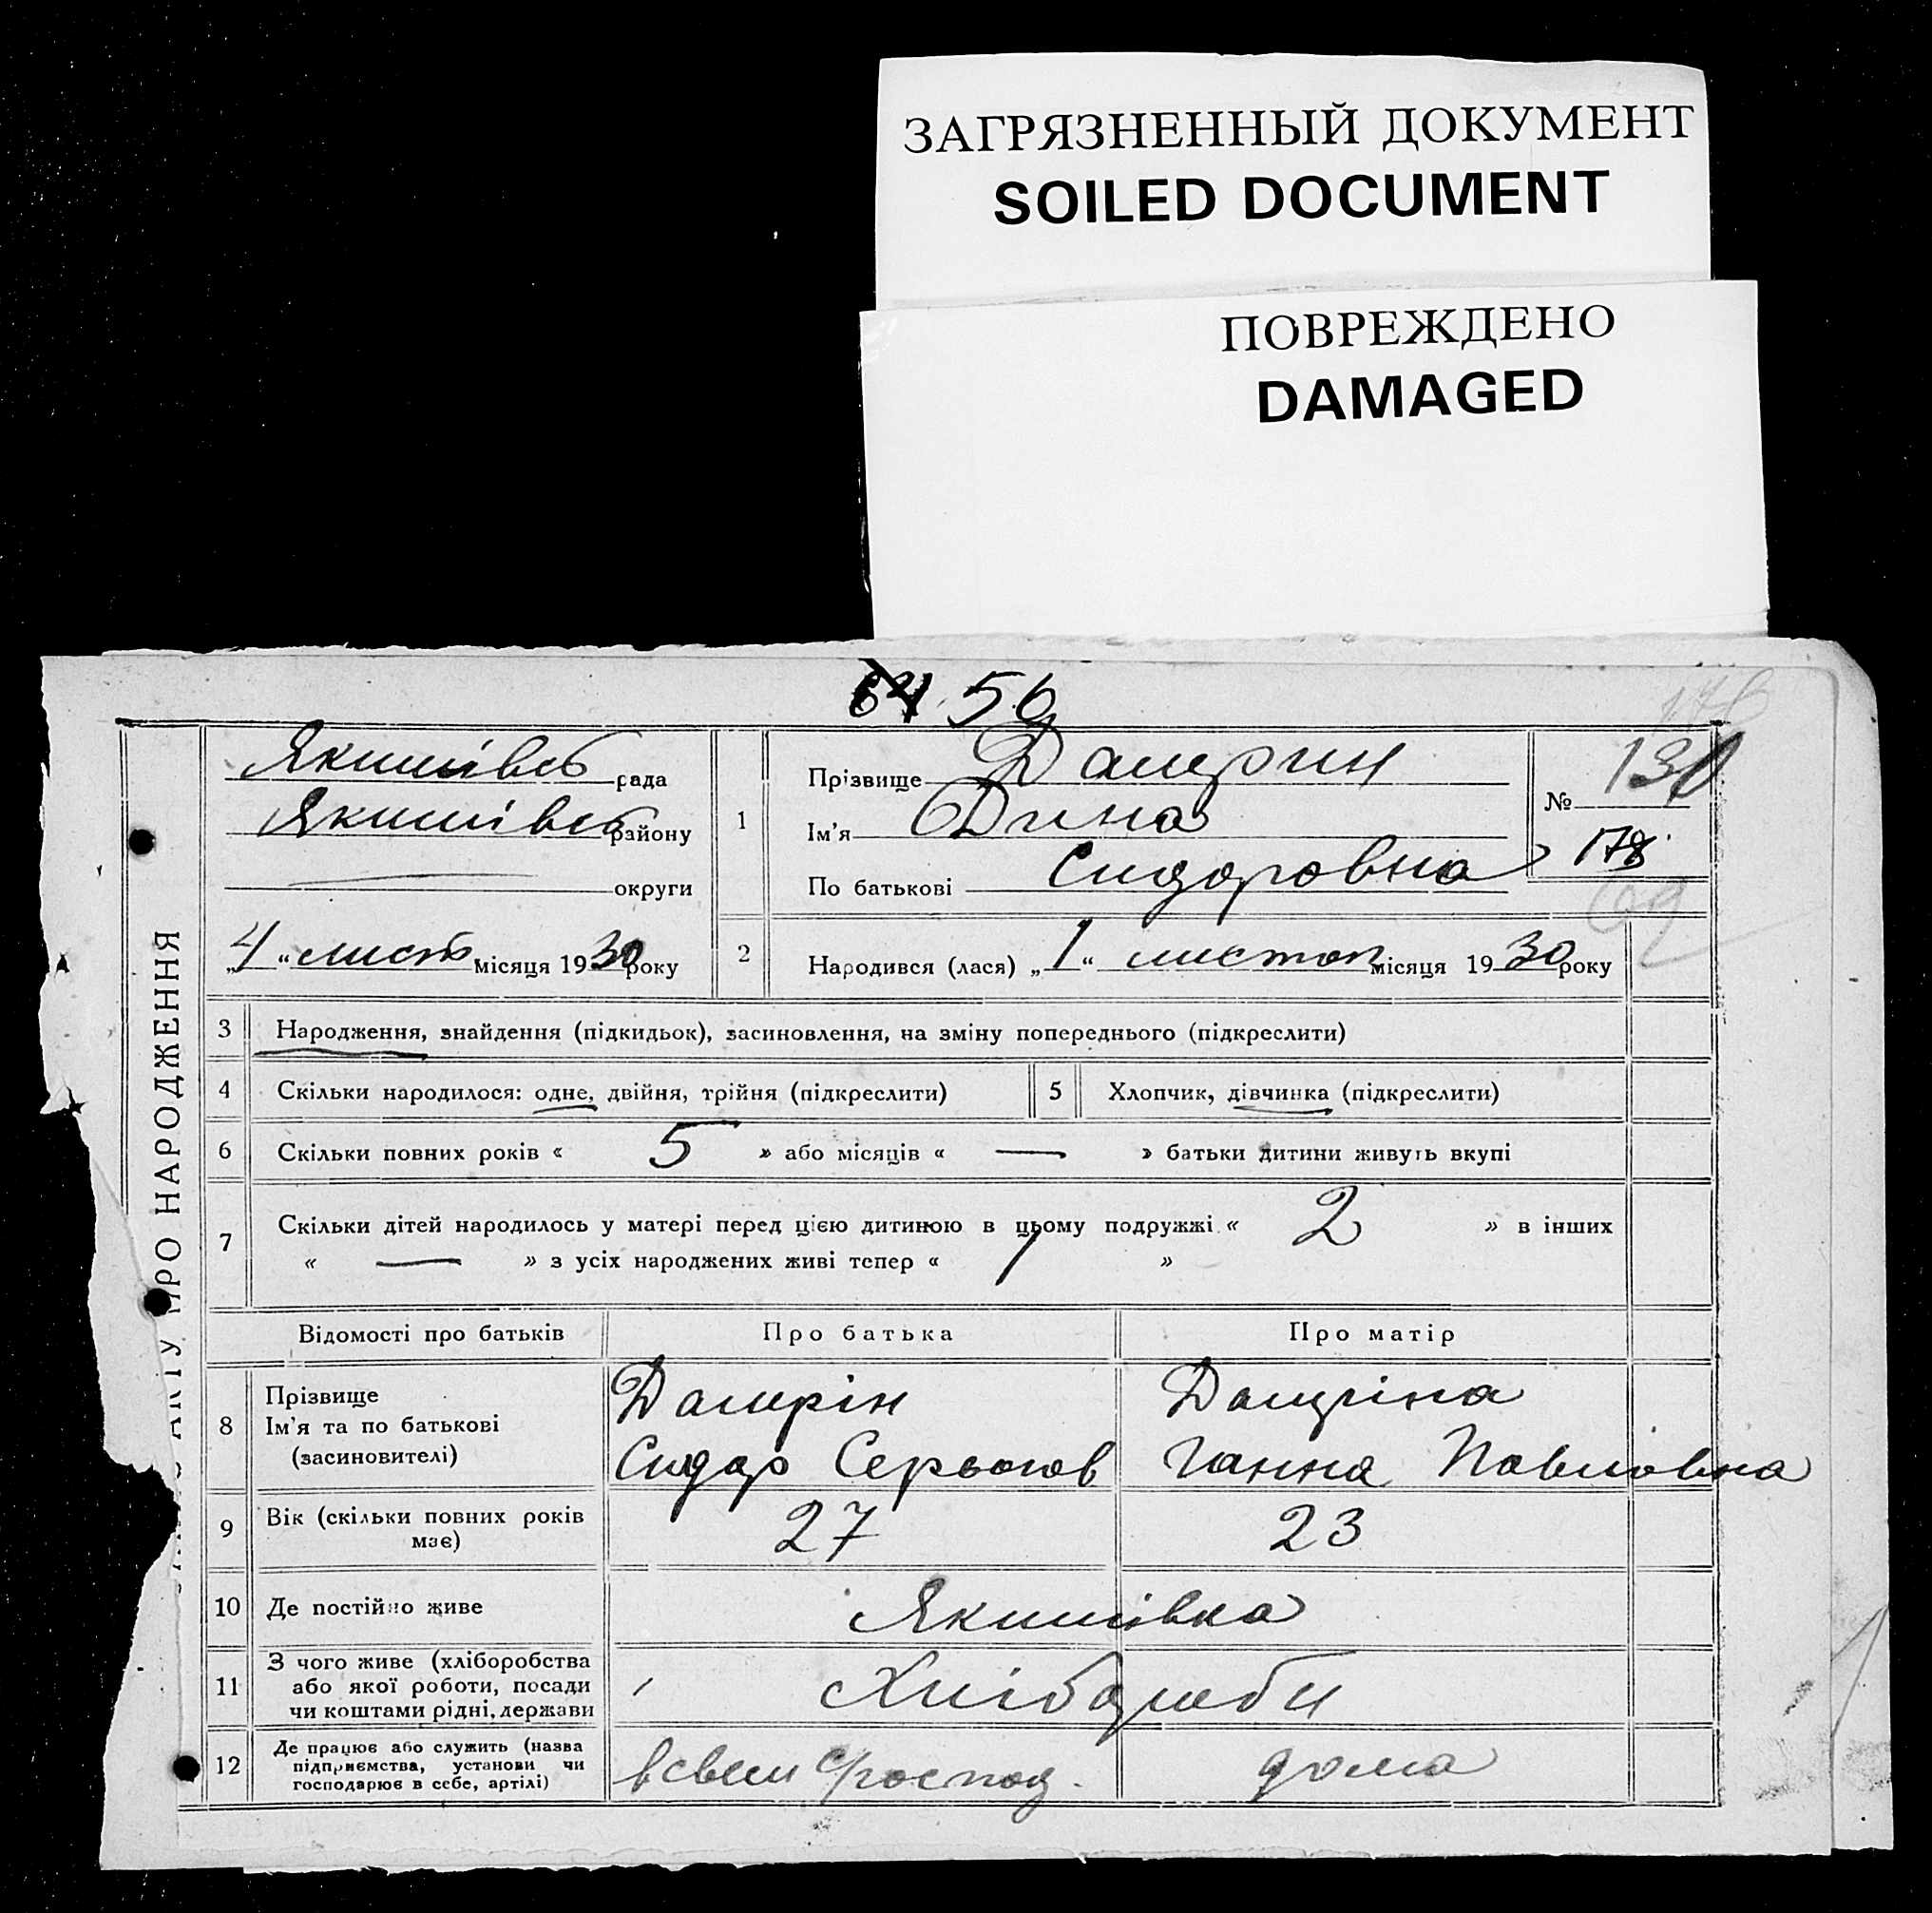 ЗАГРЯЗНЕННЫЙ ДОКУМЕНТ
SOILED DOCUMENT
ПОВРЕЖДЕНО
DAMAGED
56
Якимівсь рада
Якимівсь району
округи
1
Прізвище Дамрин
Ім'я Дина
По батькові Сидоровна
№ 130
178
69
„4“ лист місяця 1930 року
2
Народився (лася) „1“ листоп місяця 1930 року
3 Народження, знайдення (підкидьок), засиновлення, на зміну попереднього (підкреслити)
4 Скільки народилося: одне, двійня, трійня (підкреслити)
5 Хлопчик, дівчинка (підкреслити)
6 Скільки повних років « 5 » або місяців « — » батьки дитини живуть вкупі
7 Скільки дітей народилось у матері перед цією дитиною в цьому подружжі « 2 » в інших
« — » з усіх народжених живі тепер « 1 »
Відомості про батьків Про батька Про матір
8 Прізвище
Ім'я та по батькові
(засиновителі)
Дамрін
Сидор Серьогов
Дамріна
Ганна Павловна
9 Вік (скільки повних років
має)
27 23
10 Де постійно живе Якимівка
11 З чого живе (хліборобства
або якої роботи, посади
чи коштами рідні, держави
Хлібороби
12 Де працює або служить (назва
підприємства, установи чи
господарює в себе, артілі)
в свем с/господ. дома
ПРО НАРОДЖЕННЯ